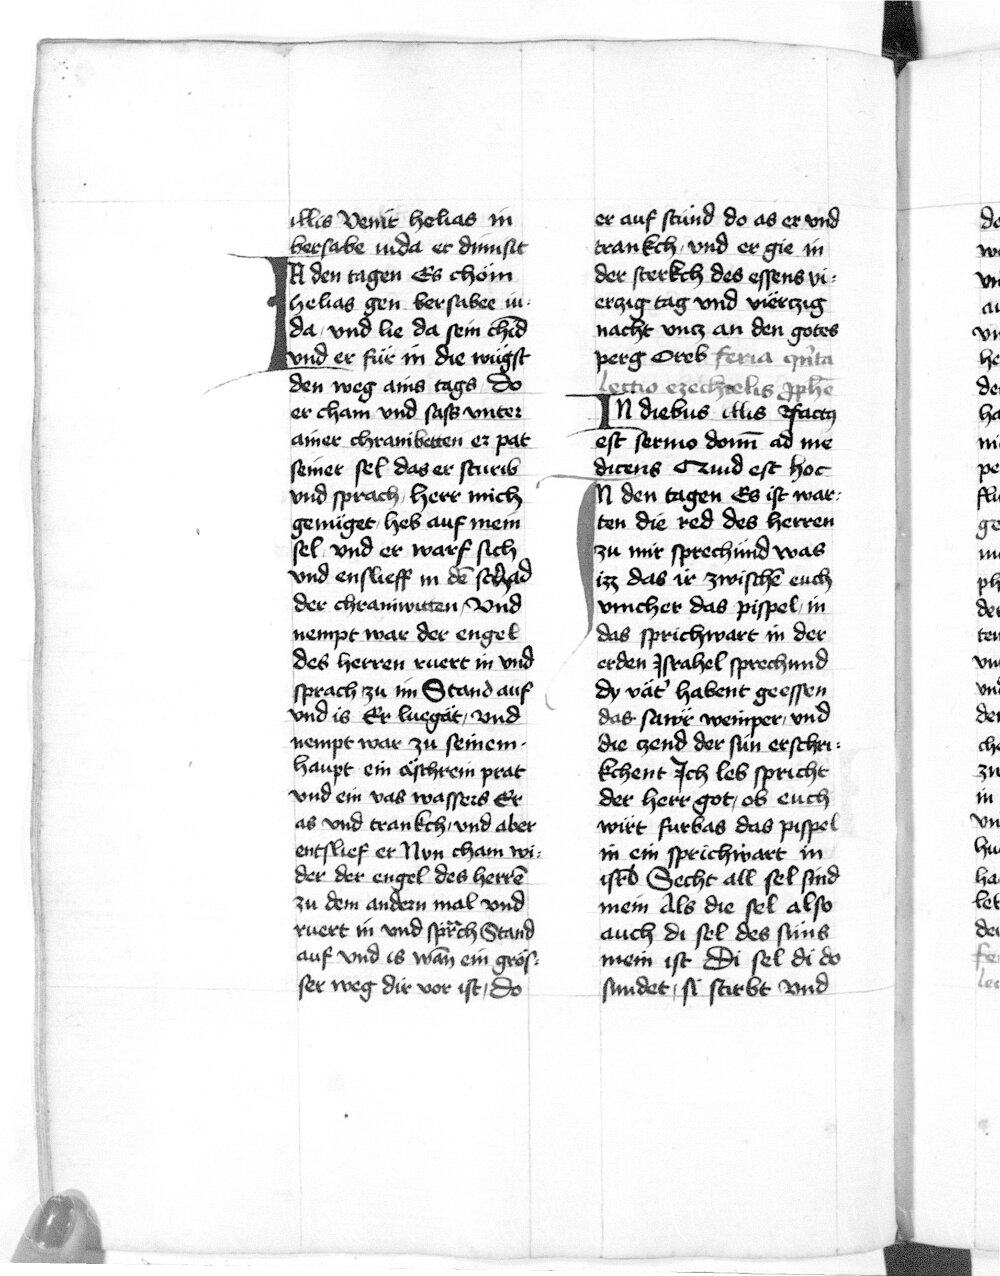 illis Venit helias in
bersabe iuda et dimisit
IN den tagen Es chom
helias gen bersabee iu-
da / vnd lie da sein chīd
vnd er für in die wügst
den weg ains tags Do
er cham vnd sass vnter
ainer chranibetten er pat
seiner sel das er sturib
vnd sprach / herr mich
genüget / heb auf mein
sel / vnd er warf sich
vnd enslieff in dē schad
der chraniwitten / Vnd
nempt war der engel
des herren ruert in vnd
sprach / zu im Stand auf
vnd is Er luegät / vnd
nempt war zu seinem-
haupt ein äschrein prat
vnd ein vas wassers Er
as vnd trankch / vnd aber
entslief er Nvn cham wi-
der der engel des herrē
zu dem andern mal vnd
ruert in vnd sprach Stand
auf vnd is wañ ein grös-
ser weg dir vor ist / Do
er auf stünd do as er vnd
trankch / vnd er gie in
der sterkch des essens vi-
erzig tag vnd vierczig
nacht vncz an den gotes
perg Oreb feria qnta
lectio ezechielis pphe
IN diebus illis factus
est sermo domī ad me
dicens Quid est hoc
IN den tagen Es ist war-
ten die red des herren
zu mir sprechund was
izz das ir zwischē euch
vmcher das pispel / in
das sprichwart in der
erden Israhel sprechund
dy vät' habent geessen
das sawr weinper / vnd
die czend der sün erschri-
kchent Ich leb spricht
der herr got / ob euch
wirt furbas das pispel
in ein sprichwart in
isrl Secht all sel sind
mein Als die sel also
auch di sel des süns
mein ist Di sel di do
sundet / si stirbt vnd